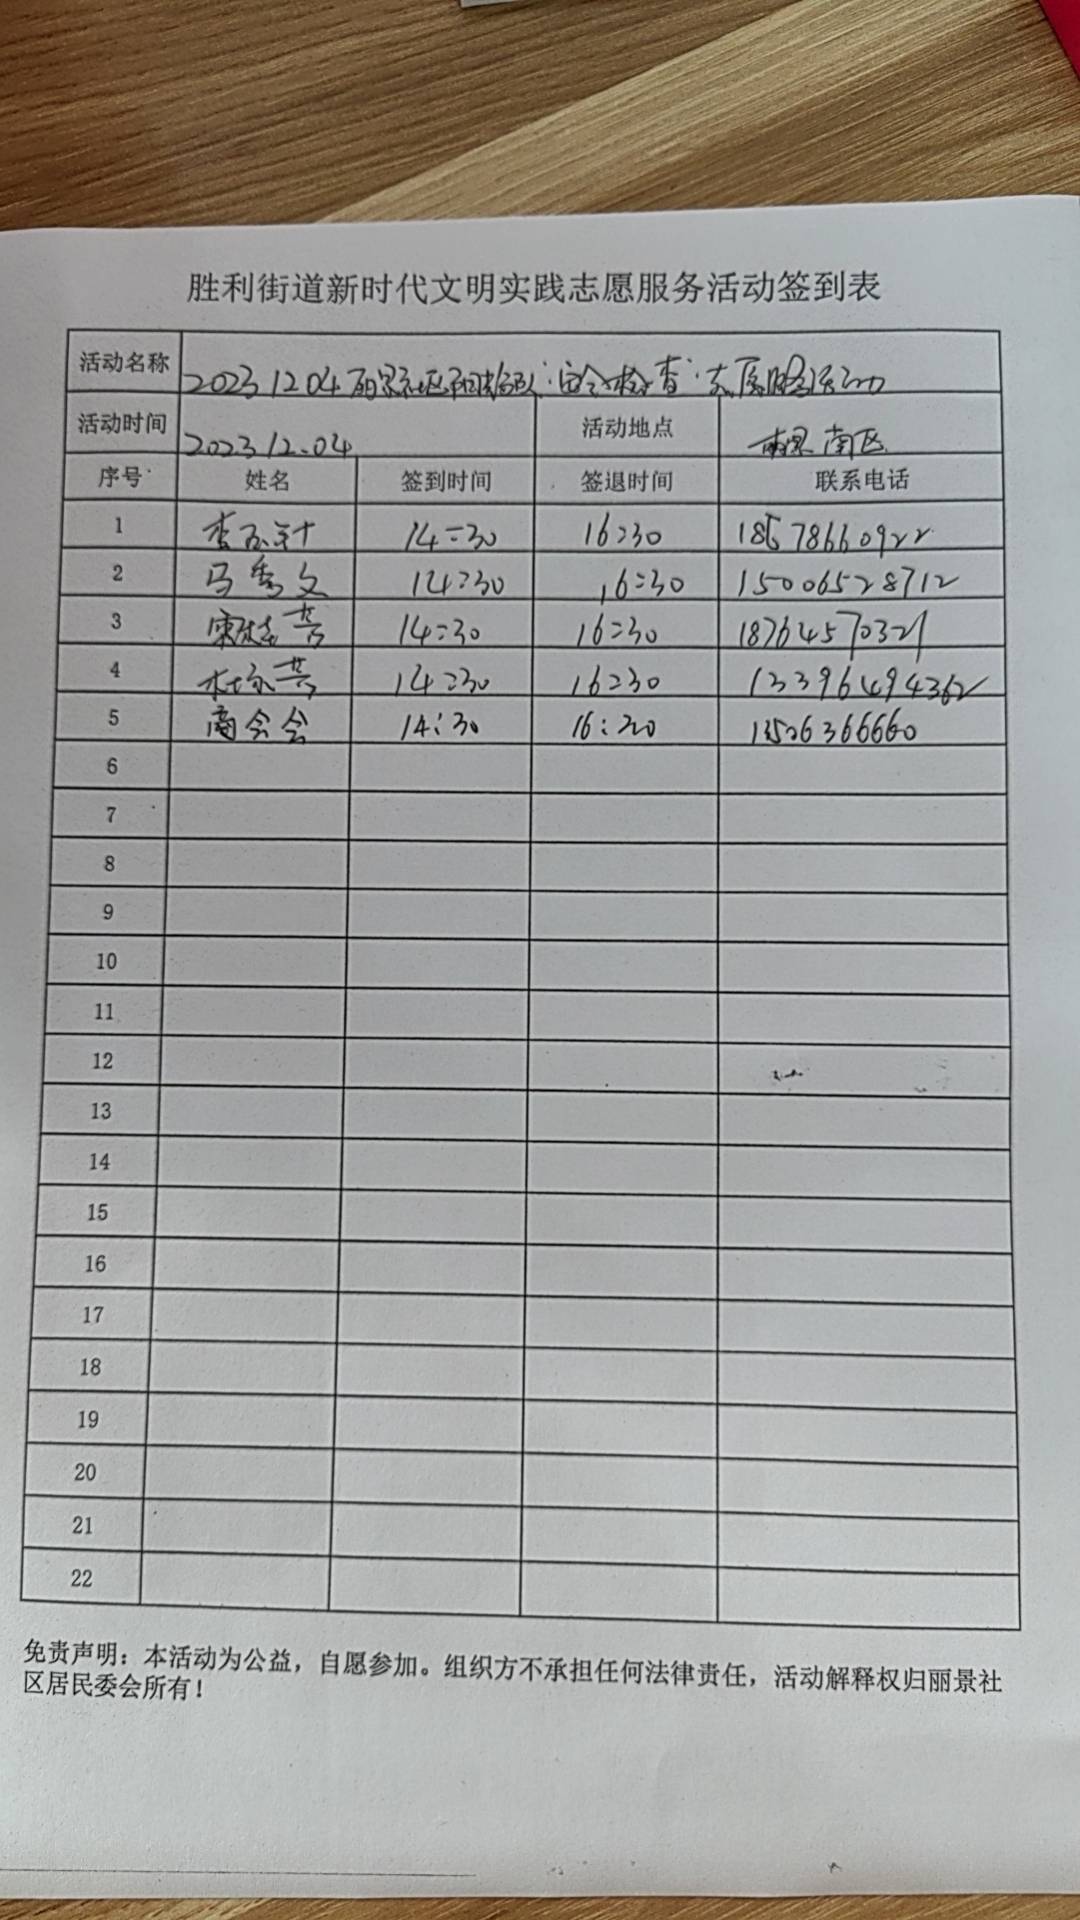 胜利街道新时代文明实践志愿服务活动签到表
活动名称 20231204丽景社区 "安全检查"志愿服务活动
活动时间 2023.12.04 活动地点 丽景南区
序号 姓名 签到时间 签退时间 联系电话
1 14:30 16:30 18678660922
2 马秀文 14:30 16:30 15006528712
3 14:30 16:30 18764570321
4 14:30 16:30 13396494362
5 商会会 14:30 16:20 13506366660
6
7
8
9
10
11
12
13
14
15
16
17
18
19
20
21
22
免责声明：本活动为公益，自愿参加。组织方不承担任何法律责任，活动解释权归丽景社
区居民委会所有！